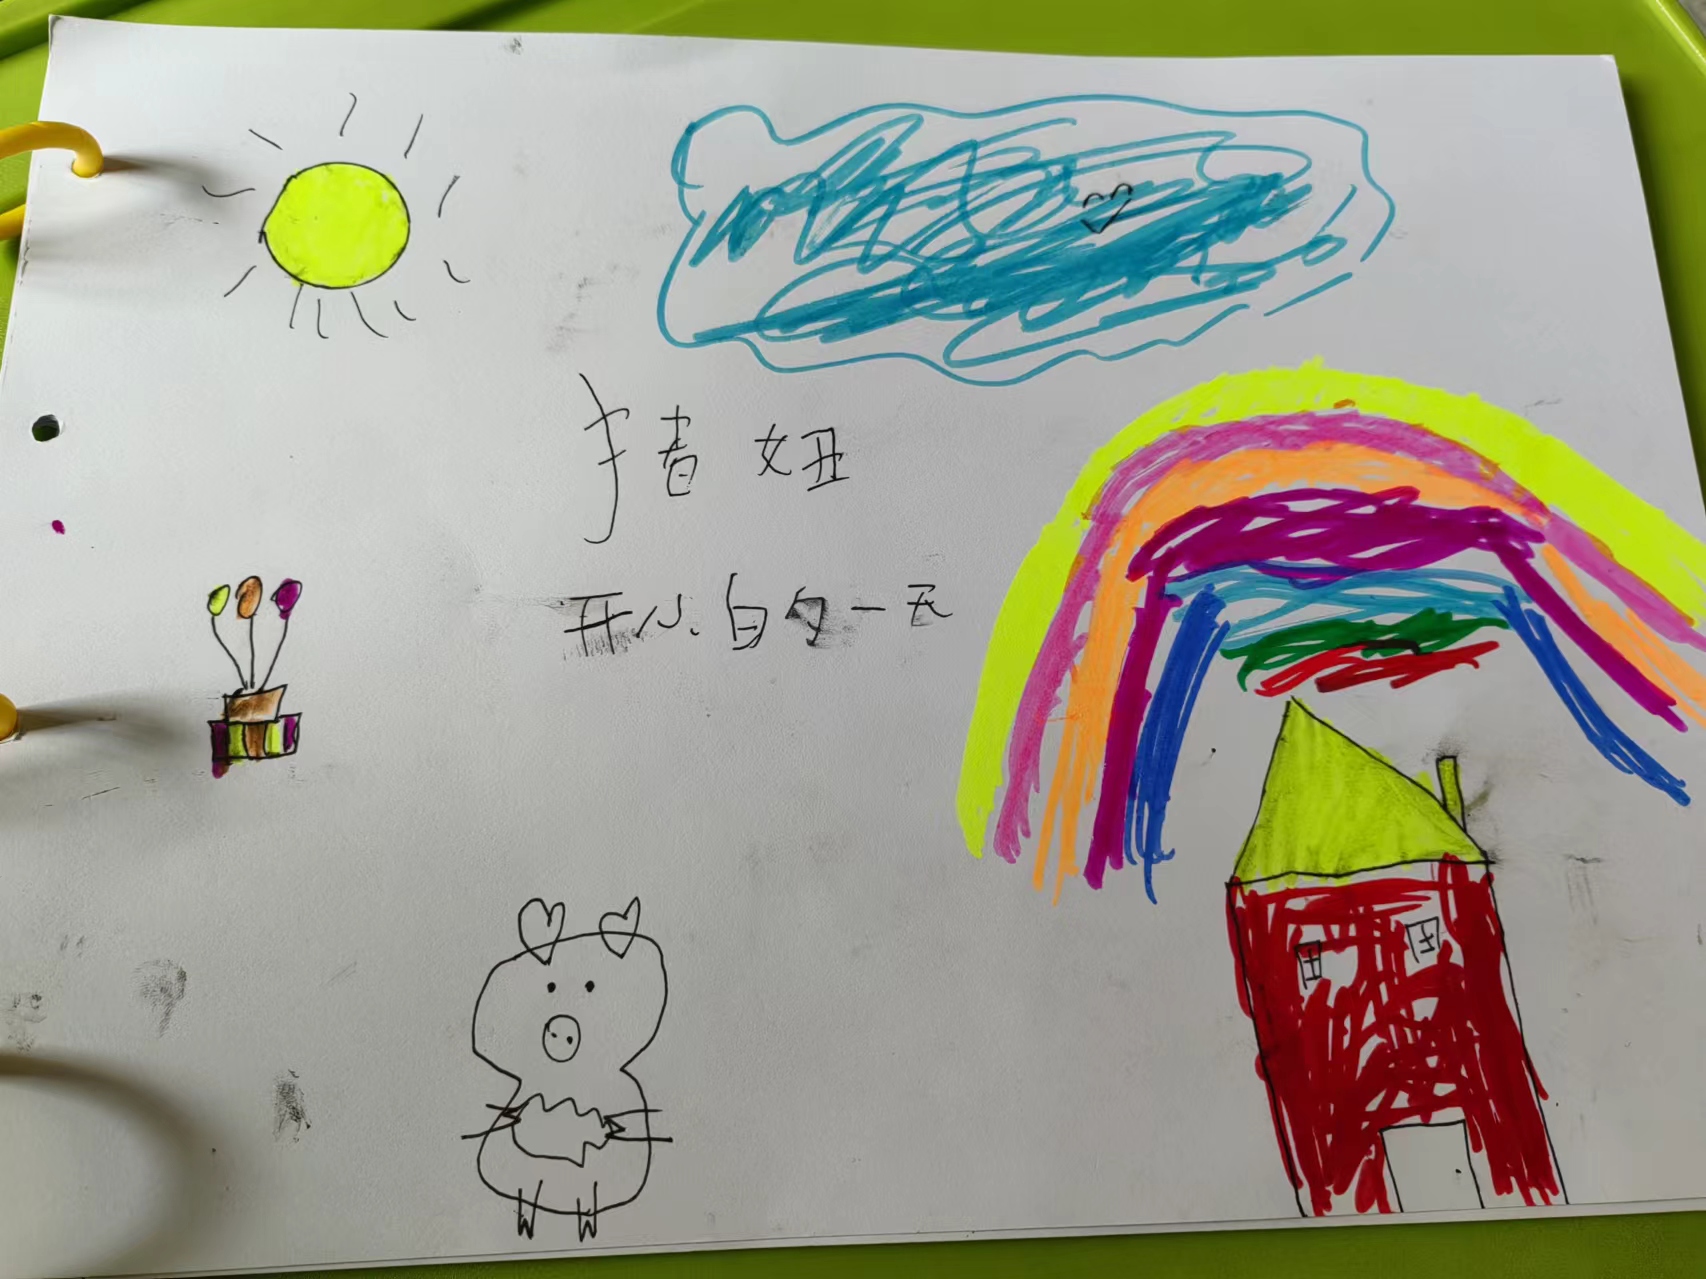 猪妞
开心的一天